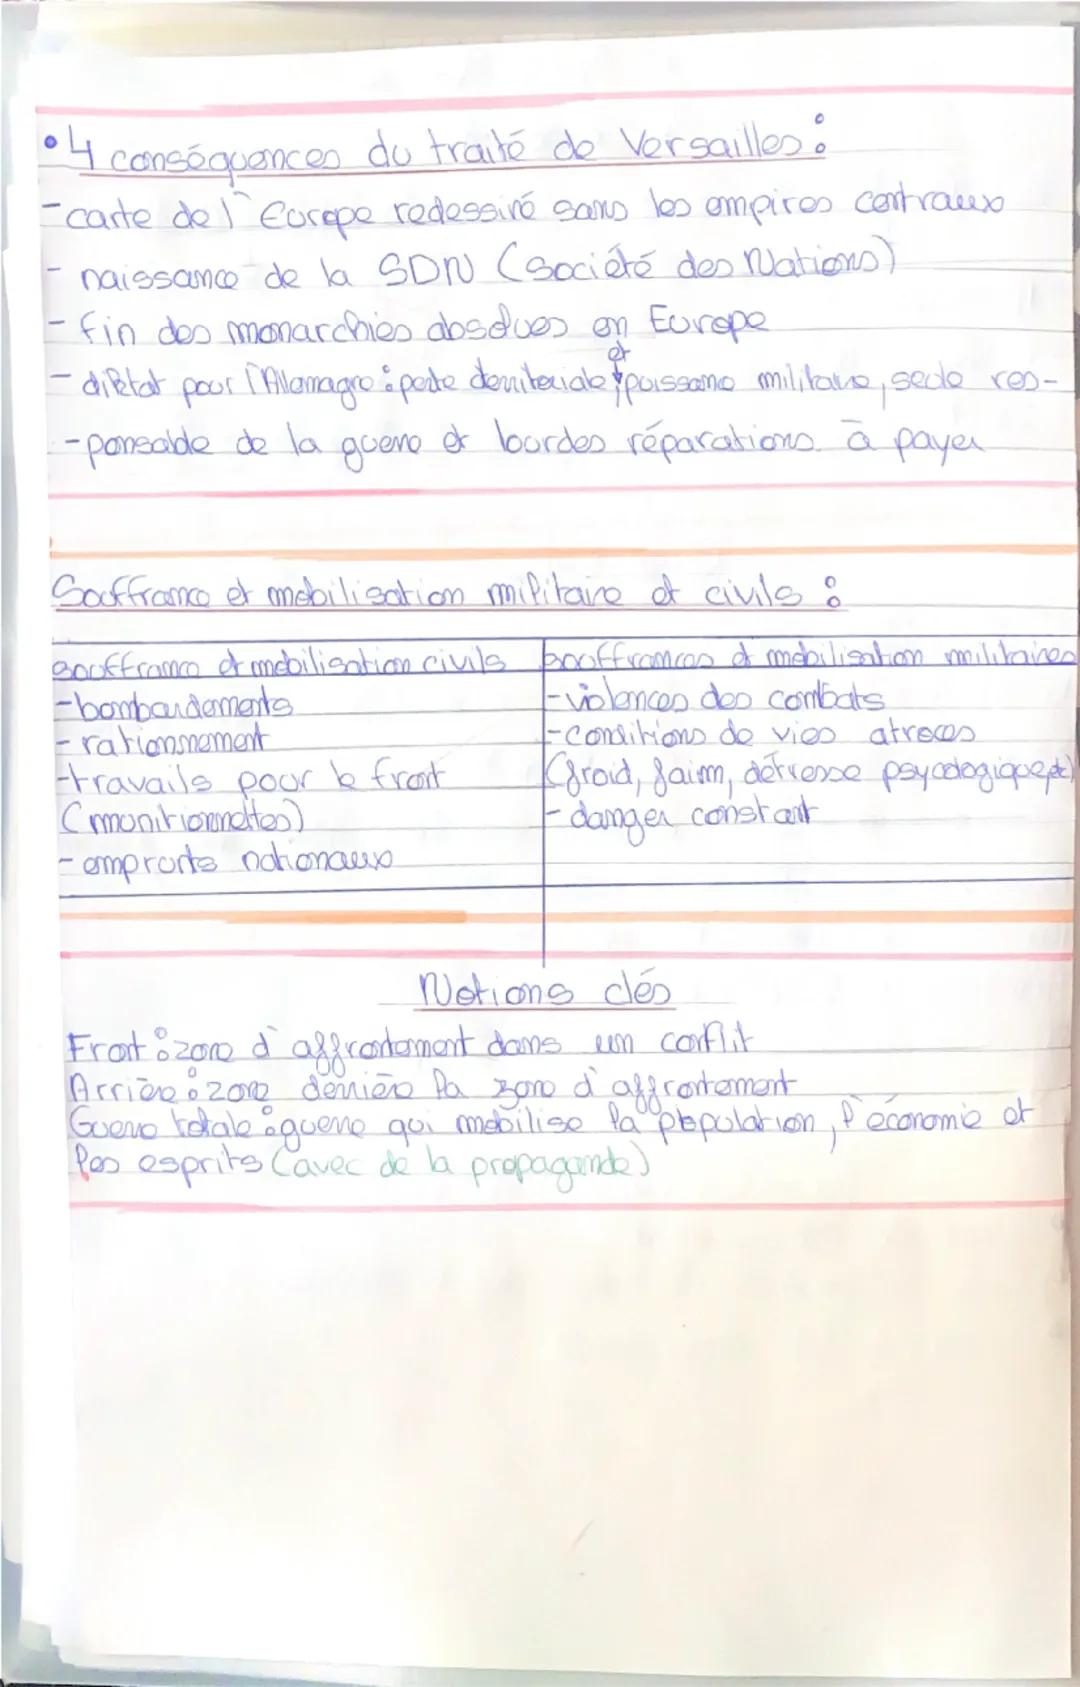 • 4 conséquences du traité de Versailles :
- carte de l'Europe redessiné sans les empires centraux
- naissance de la SDN (Société des Nations)
- fin des monarchies absolues en Europe
et
- diktat pour l'Allemagne : perte de territoriale puissance militaire, seule res-
- ponsable de la guerre et lourdes réparations à payer
Souffrance et mobilisation militaire et civils :
souffrance et mobilisation civils
- bombardements
- rationnement
- travails pour le front
(munitionnettes)
- emprunts nationaux
souffrances et mobilisation militaires
- violences des combats
- conditions de vies atroces
(froid, faim, détresse psycologique, etc)
- danger constant
Notions clés
Front : zone d'affrontement dans un conflit
Arrière : zone derrière la zone d'affrontement
Guerre totale : guerre qui mobilise la population, l'économie et
les esprits (avec de la propagande)